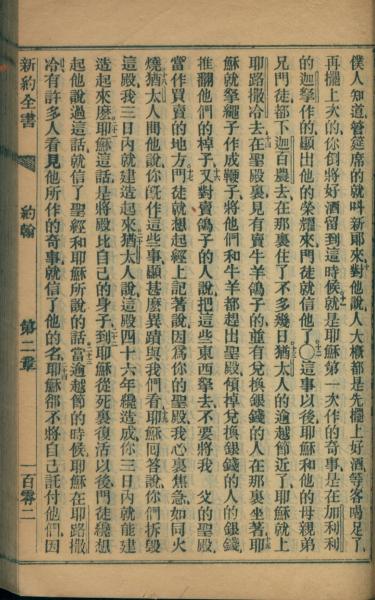 僕人知道管筵席的就叫新郎來對他說人大概都是先擺上好酒等客喝足了
再擺上次的你倒將好酒留到這時候就是耶穌第一次作的奇事是在加利利
的迦拏作的顯出他的榮耀來門徒就信他了〇這事以後耶穌和他的母親弟
兄門徒都下迦百農去在那裏住了不多幾日猶太人的逾越節近了耶穌就上
耶路撒冷去在聖殿裏見有賣牛羊鴿子的並有兌換銀錢的人在那裏坐著耶
穌就拏繩子作成鞭子將他們和牛羊都趕出聖殿傾掉兌換銀錢的人的銀錢
推翻他們的棹子又對賣鴿子的人說把這些東西拏去不要將我 父的聖殿
當作買賣的地方門徒就想起經上記著說因爲你的聖殿我心裏焦急如同火
燒猶太人問他說你旣作這些事顯甚麽異蹟與我們看耶穌回答說你們拆毀
這殿我三日內就建造起來猶太人說這殿四十六年纔造成你三日內就能建
造起來麽耶穌這話是將殿比自己的身子到耶穌從死裏復活以後門徒纔想
起他說過這話就信了聖經和耶穌所說的話當逾越節的時候耶穌在耶路撒
冷有許多人看見他所作的奇事就信了他的名耶穌卻不將自己託付他們因
新約全書 約翰 第二章 百零二